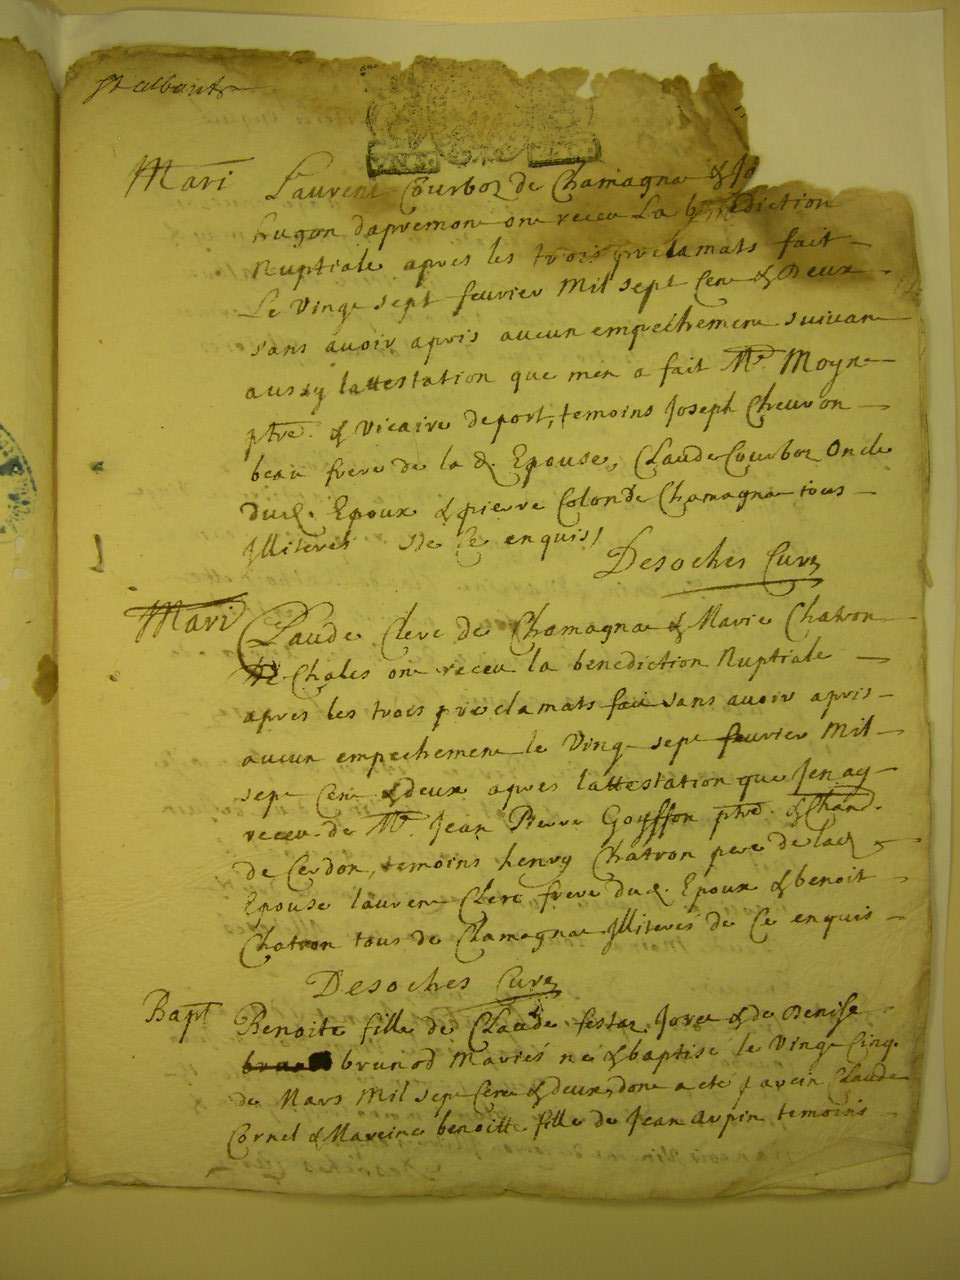 St albant
Mari Laurent Courboz de Chamagna & Jo
hugon dapremon ont receu La benediction
Nuptiale apres les trois proclamats fait
Le Vingt sept feurier Mil sept Cent & Deux
sans avoir apris aucun empechement suivant
aussy lattestation que men a fait Mre. Moyne
ptre. & Vicaire deport, temoins Joseph Cheuron
beau frere de la d. Epouse, Claude Courboz Oncle
dud. Epoux & pierre Colon de Chamagna tous
Illiteres De Ce enquis /
Desoches Curé
Mari Claude Clerc de Chamagna & Marie Chatron
de Chales ont receu la benediction Nuptiale
apres les trois proclamats fait sans avoir apris
aucun empechement le Vingt sept feurier Mil
sept Cent & deux apres lattestation que Jen ay
receu de Mre. Jean Pierre Goyffon ptre. & Chan.
de Cerdon, temoins henry Chatron pere de lad.
Epouse laurent Clerc frere dud. Epoux & benoit
Chatron tous de Chamagna Illiteres de Ce enquis
Desoches Curé
Bapt Benoite fille de Claude festaz Jorce & de Denise
brunod Mariés né & baptisé le Vingt Cinq
de Mars Mil sept Cent & deux, dont a eté parein Claude
Cornet & Mareine benoitte fille de Jean Arpin temoins